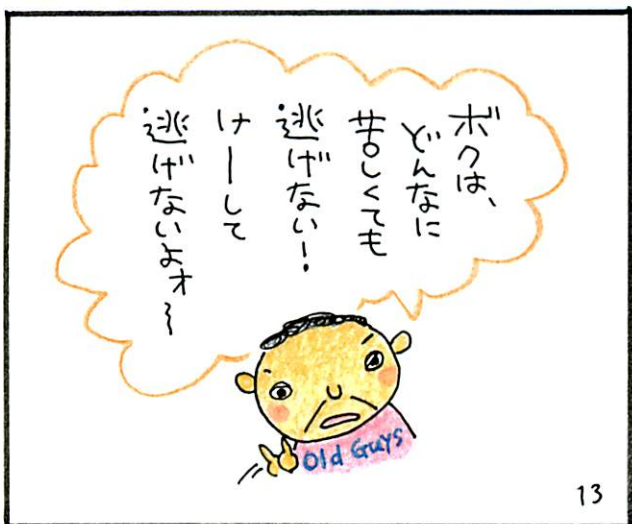 ボクは、
どんなに
苦しくても
逃げない！
けーして
逃げないよオ〜
Old Guys
13